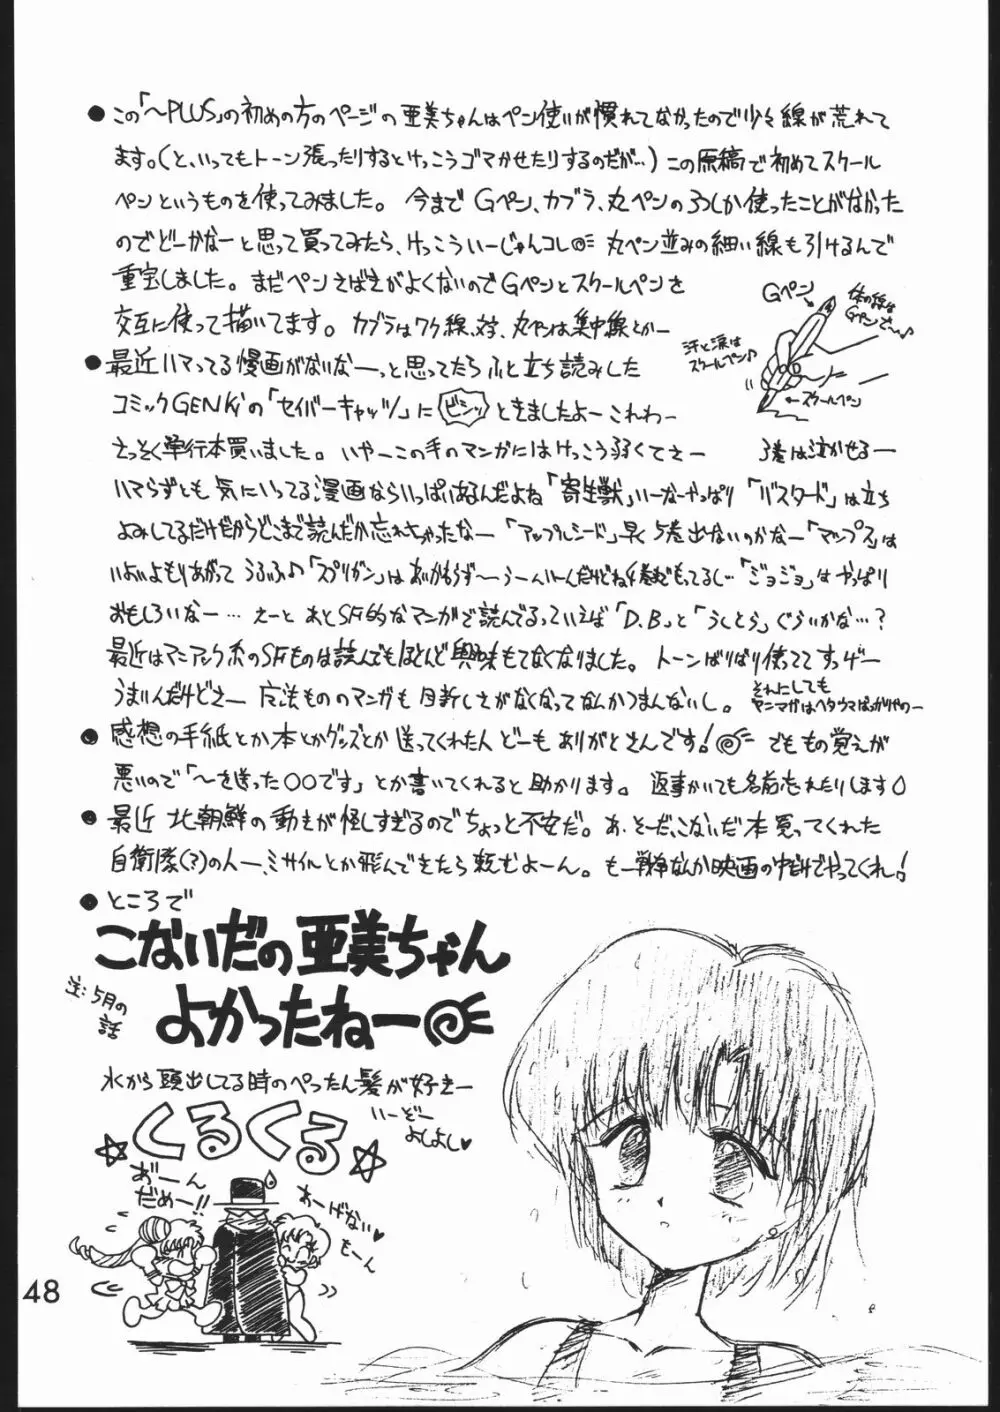 ●この「～PLUS」の初めの方のページの亜美ちゃんはペン使いが慣れてなかったので少々線が荒れて
ます。(と、いってもトーン張ったりするとけっこうゴマかせたりするのだが…)この原稿で初めてスクール
ペンというものを使ってみました。今までGペン、カブラ、丸ペンの3つしか使ったことがなかった
のでどーかなーと思って買ってみたら、けっこういーじゃんコレ 丸ペン並みの細い線も引けるんで
重宝しました。まだペンさばきがよくないのでGペンとスクールペンを
交互に使って描いてます。カブラはワク線、丸ペンは集中線とかー
Gペン
体の線は
Gペンで♪
汗と涙は
スクールペン♪
←スクールペン
●最近ハマってる漫画がないなーっと思ってたらふと立ち読みした
コミックGENKiの「セイバーキャッツ」にビシッときましたよーこれわー
さっそく単行本買いました。いやーこの手のマンガにはけっこう弱くてさー 3巻は泣かせるー
ハマらずとも気にいってる漫画ならいっぱいあるんだよね「寄生獣」いーなーやっぱり「バスタード」は立ち
よみしてるだけだからどこまで読んだか忘れちゃったなー「アップルシード」早く5巻出ないのかなー「マップス」は
いよいよもりあがってうふふ♪「スプリガン」はあいかわらず～うーんいーんだけどね4巻までもってるし…「ジョジョ」はやっぱり
おもしろいなー…えーとあとSF的なマンガで読んでるっていえば「D.B」と「うしとら」ぐらいかな…?
最近はマニアック系のSFものは読んでもほとんど興味もてなくなりました。トーンばりばり使ってすっげー
うまいんだけどさー 魔法もののマンガも目新しさがなくなってなんかつまんないし。
それにしても
ヤンマガはヘタウマばっかりやのー
●感想の手紙とか本とかグッズとか送ってくれた人どーもありがとさんです! でももの覚えが
悪いので「～を送った○○です」とか書いてくれると助かります。返事かいても名前忘れたりします
●最近北朝鮮の動きが怪しすぎるのでちょっと不安だ。あ、そーだ、こないだ本買ってくれた
自衛隊(?)の人ー、ミサイルとか飛んできたら頼むよーん。もー戦争なんか映画の中だけでやってくれ!
●ところで
こないだの亜美ちゃん
よかったねー
注:5月の
話
水から頭出してる時のぺったん髪が好きー
いーぞー
よしよし♥
☆くるくる☆
あ゛ーん
だめー!!
あーげない♥
もーん
48